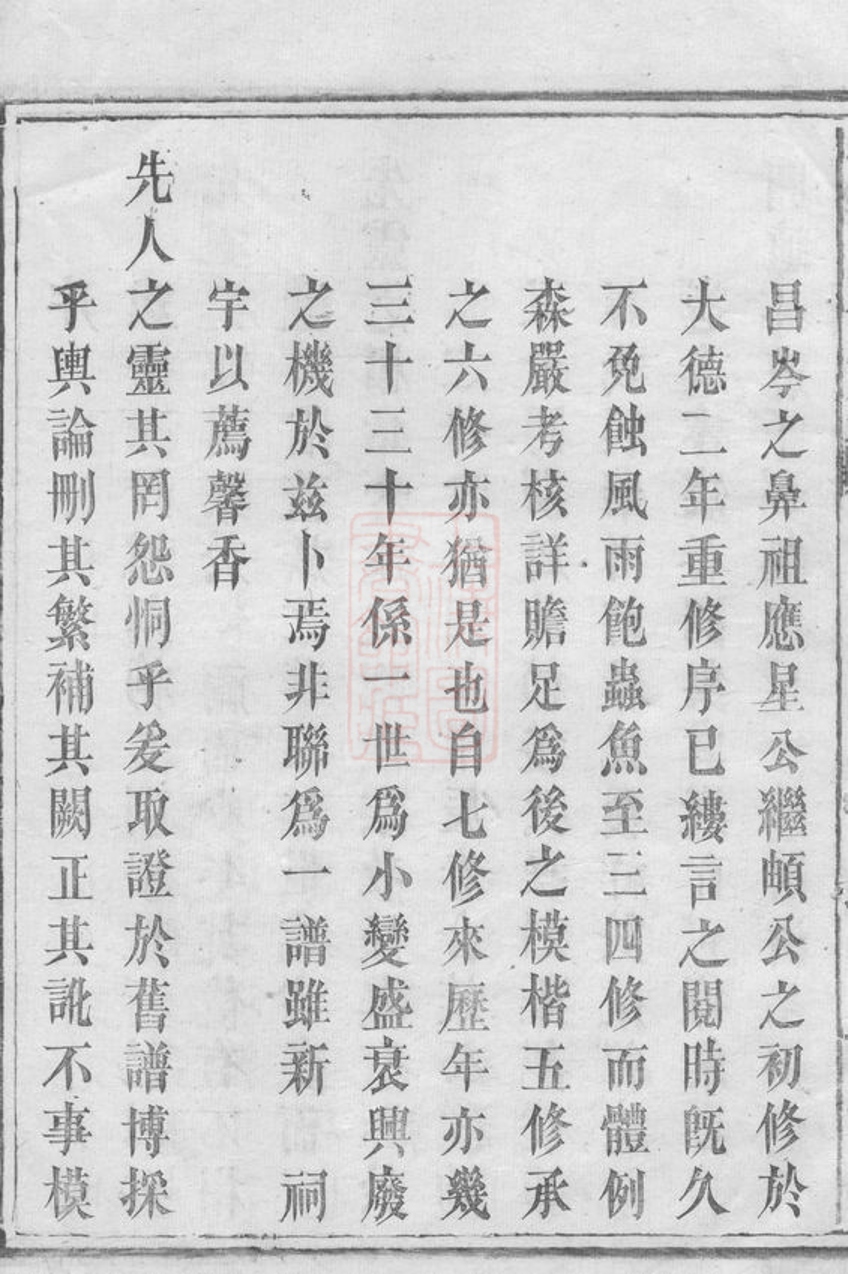 昌岑之鼻祖應星公繼頔公之初修於
大德二年重修序已縷言之閱時旣久
不免蝕風雨飽蟲魚至三四修而體例
森嚴考核詳贍足爲後之模楷五修承
之六修亦猶是也自七修來歷年亦幾
三十三十年係一世爲小變盛衰興廢
之機於茲卜焉非聯爲一譜雖新 祠
宇以薦馨香
先人之靈其罔怨恫乎爰取證於舊譜博採
乎輿論刪其繁補其闕正其訛不事模